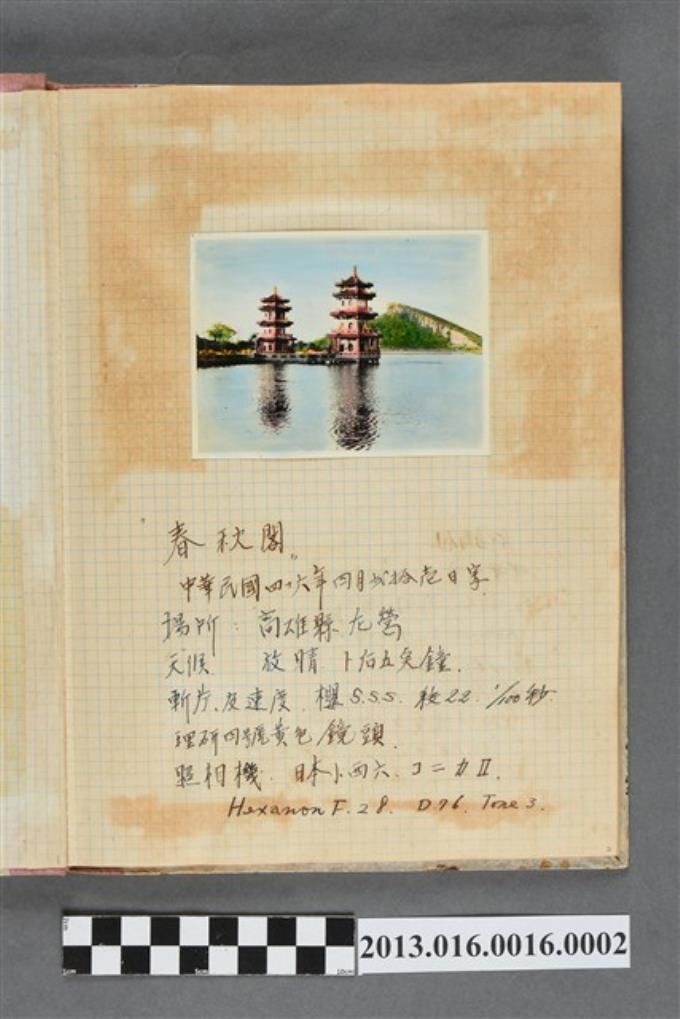 春秋閣。
中華民國四十六年四月弍拾壱日写
場所：高雄縣左營
天候 放晴 下后五矣鐘.
斬片、及速度. 櫻S.S.S. 枚22. 1/100秒.
理研四號黃色鏡頭.
照相機. 日本小西六. コニカⅡ.
Hexanon F.28. D76. Tone 3.
2013.016.0016.0002